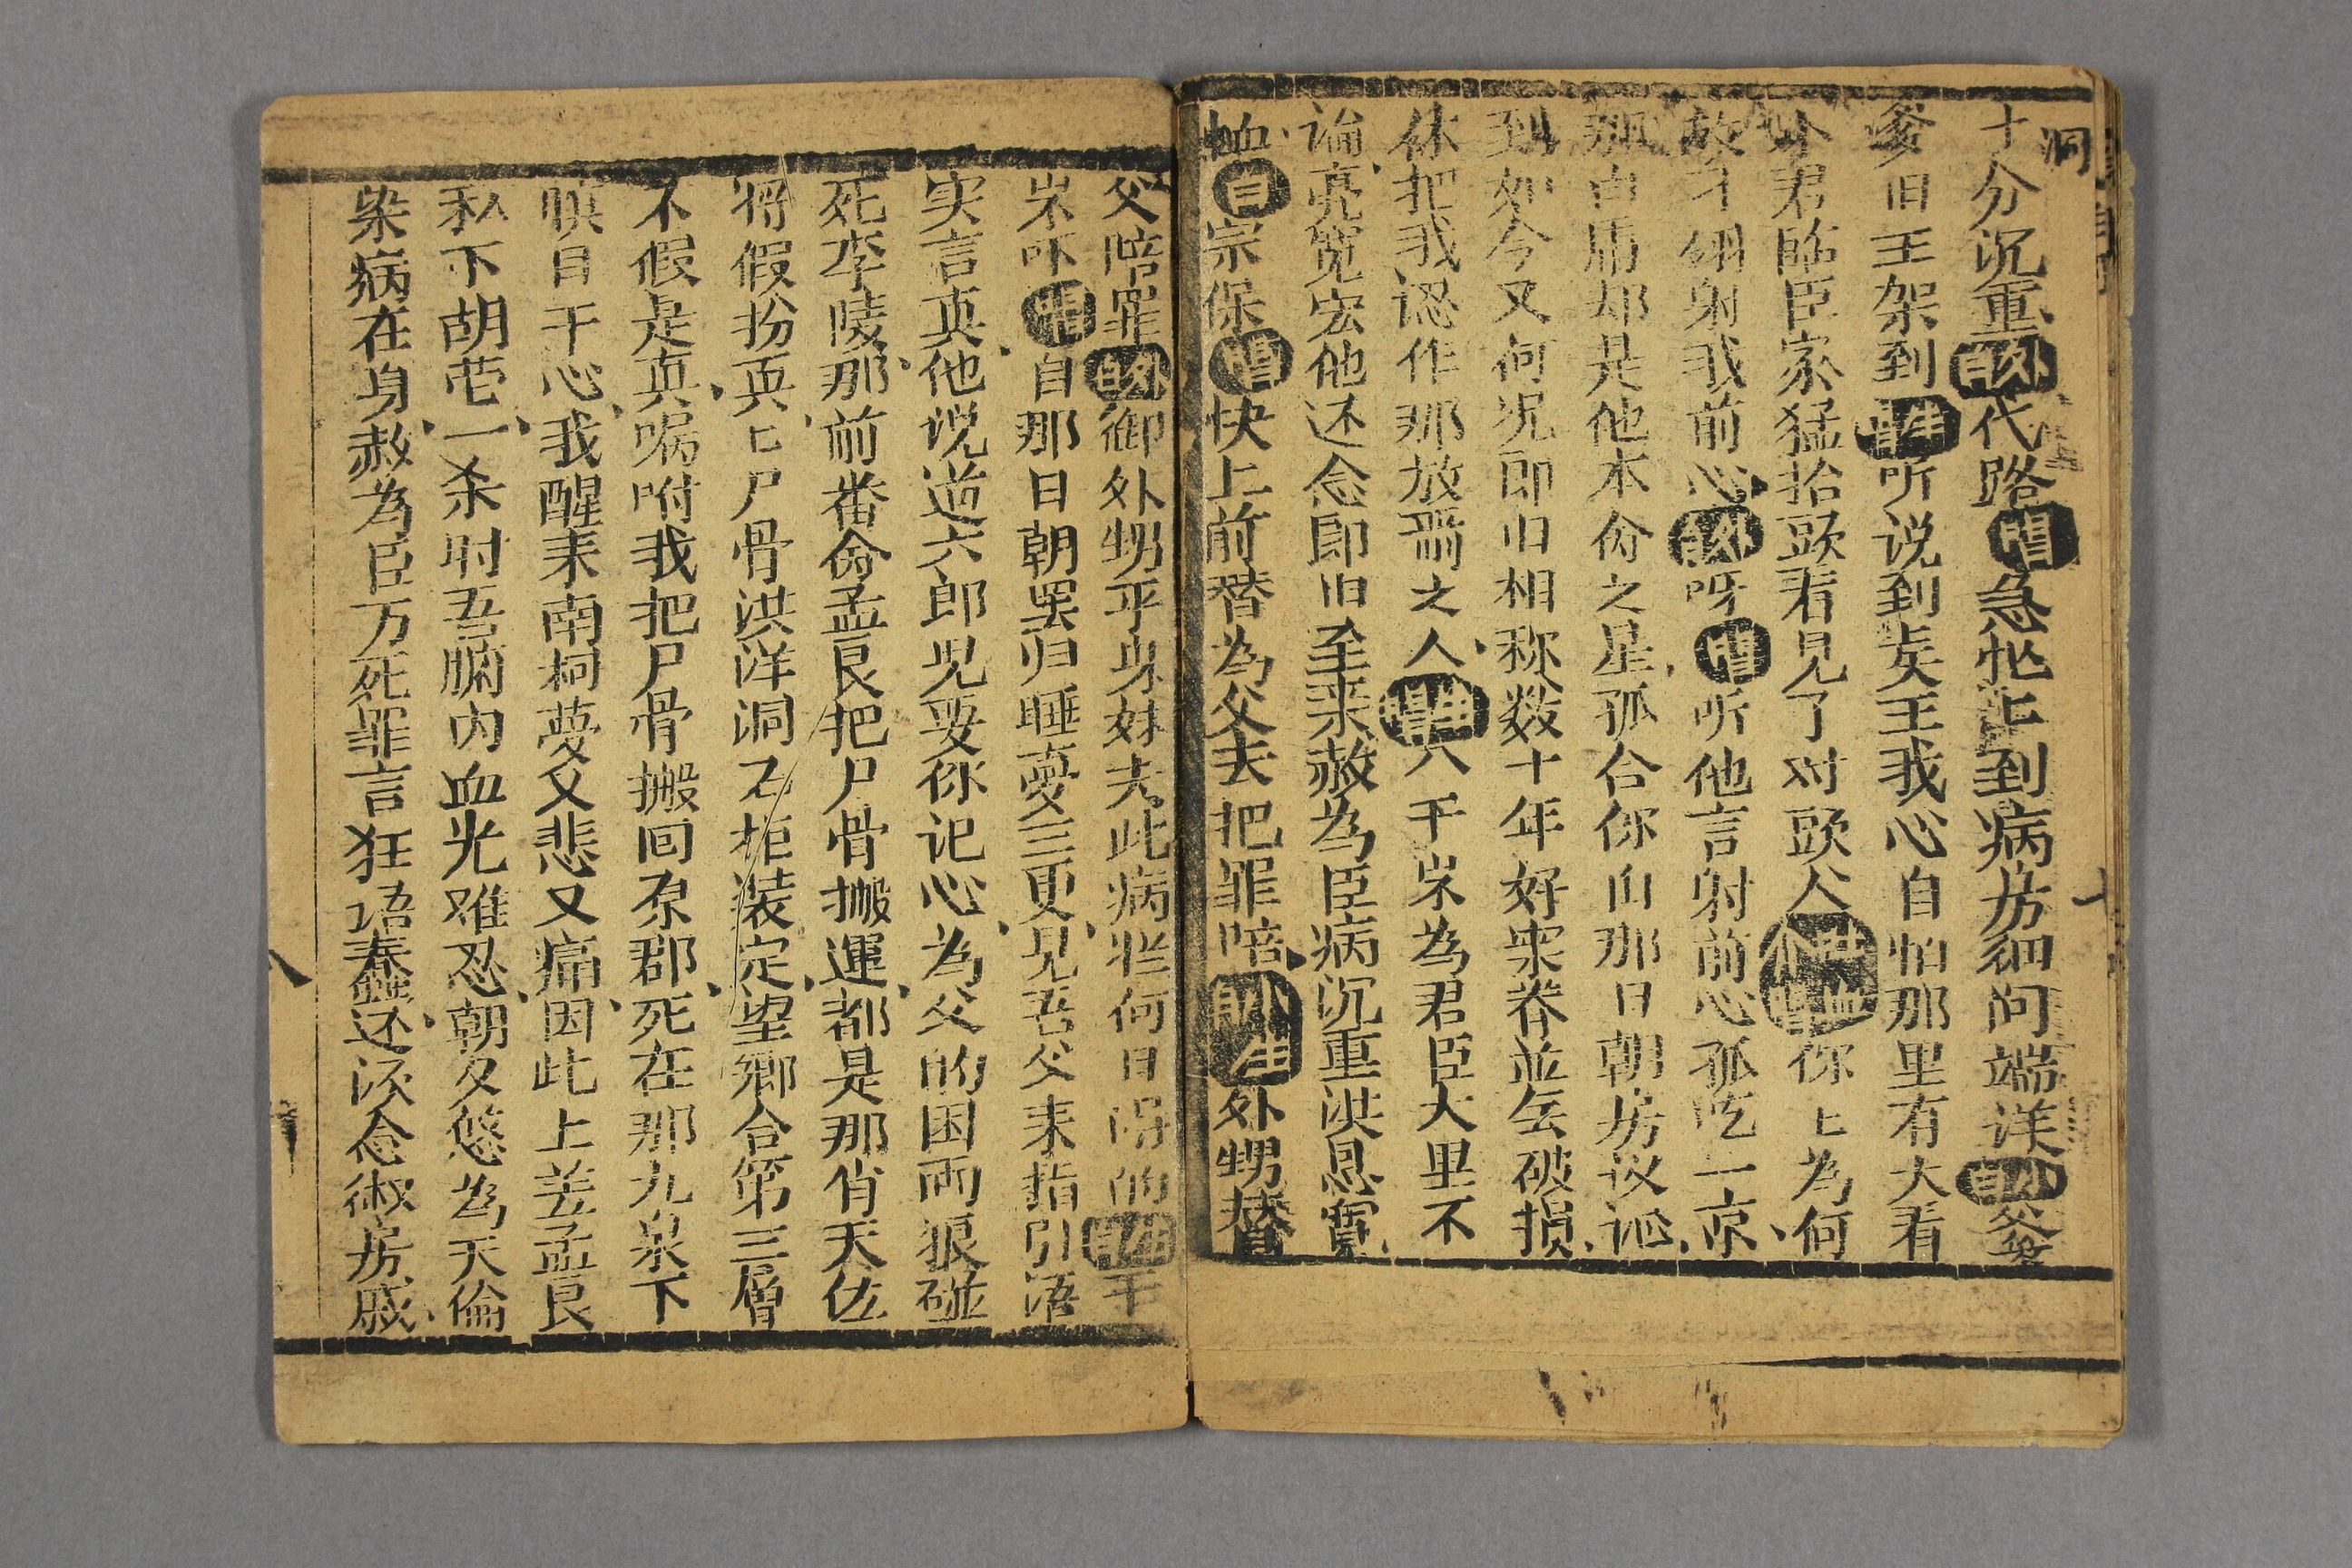 洞
十分沉重外白代路唱急忙上到病房细问端详外白爹
爹旧王架到唱听说到矣王我心自怕那里有大看
个君临臣家猛抬頭看見了对頭人你上為何
故才翎射我前心外白呀唱听他言射前心孤吃一京
那白乕却是他本命之星孤合你自那日朝房议论
到如今又何况即旧相称数十年好眾眷並無破损
休把我认作那放箭之人八千岁為君臣大里不
论亮宽宏他还念郎旧至亲赦為臣病沉重洪恩寬
恤曰宗保唱快上前替為父夫把罪陪外生外甥替
父陪罪外白御外甥平身妹夫此病从何日得的千
岁吓唱自那日朝罢归睡夢三更見吾父来指引语
实言真他说道六郎児要你记心為父的困両狼碰
死李陵那前番命孟良把尸骨搬運都是那肖天佐
将假扮真上尸骨洪洋洞石柜装定望鄉台第三層
不假是真嘱咐我把尸骨搬回原郡死在那九泉下
瞑目干心我醒来南柯夢又悲又痛因此上差孟良
私下胡营一杀时五腑内血光难忍朝夕悠為天倫
染病在身赦為臣万死罪言狂语蠢还须念椒房戚
八